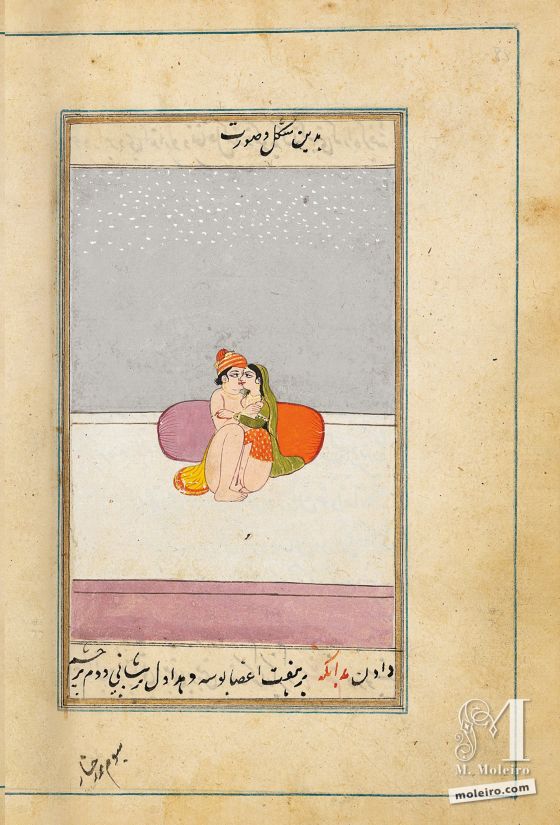 بدین شکل و صورت
دادن بدانکه بر هفت اعضا بوسه دهد اول بر پیشانی دوم بر چشم
سیوم بر رخسار
M
M. Moleiro
moleiro.com